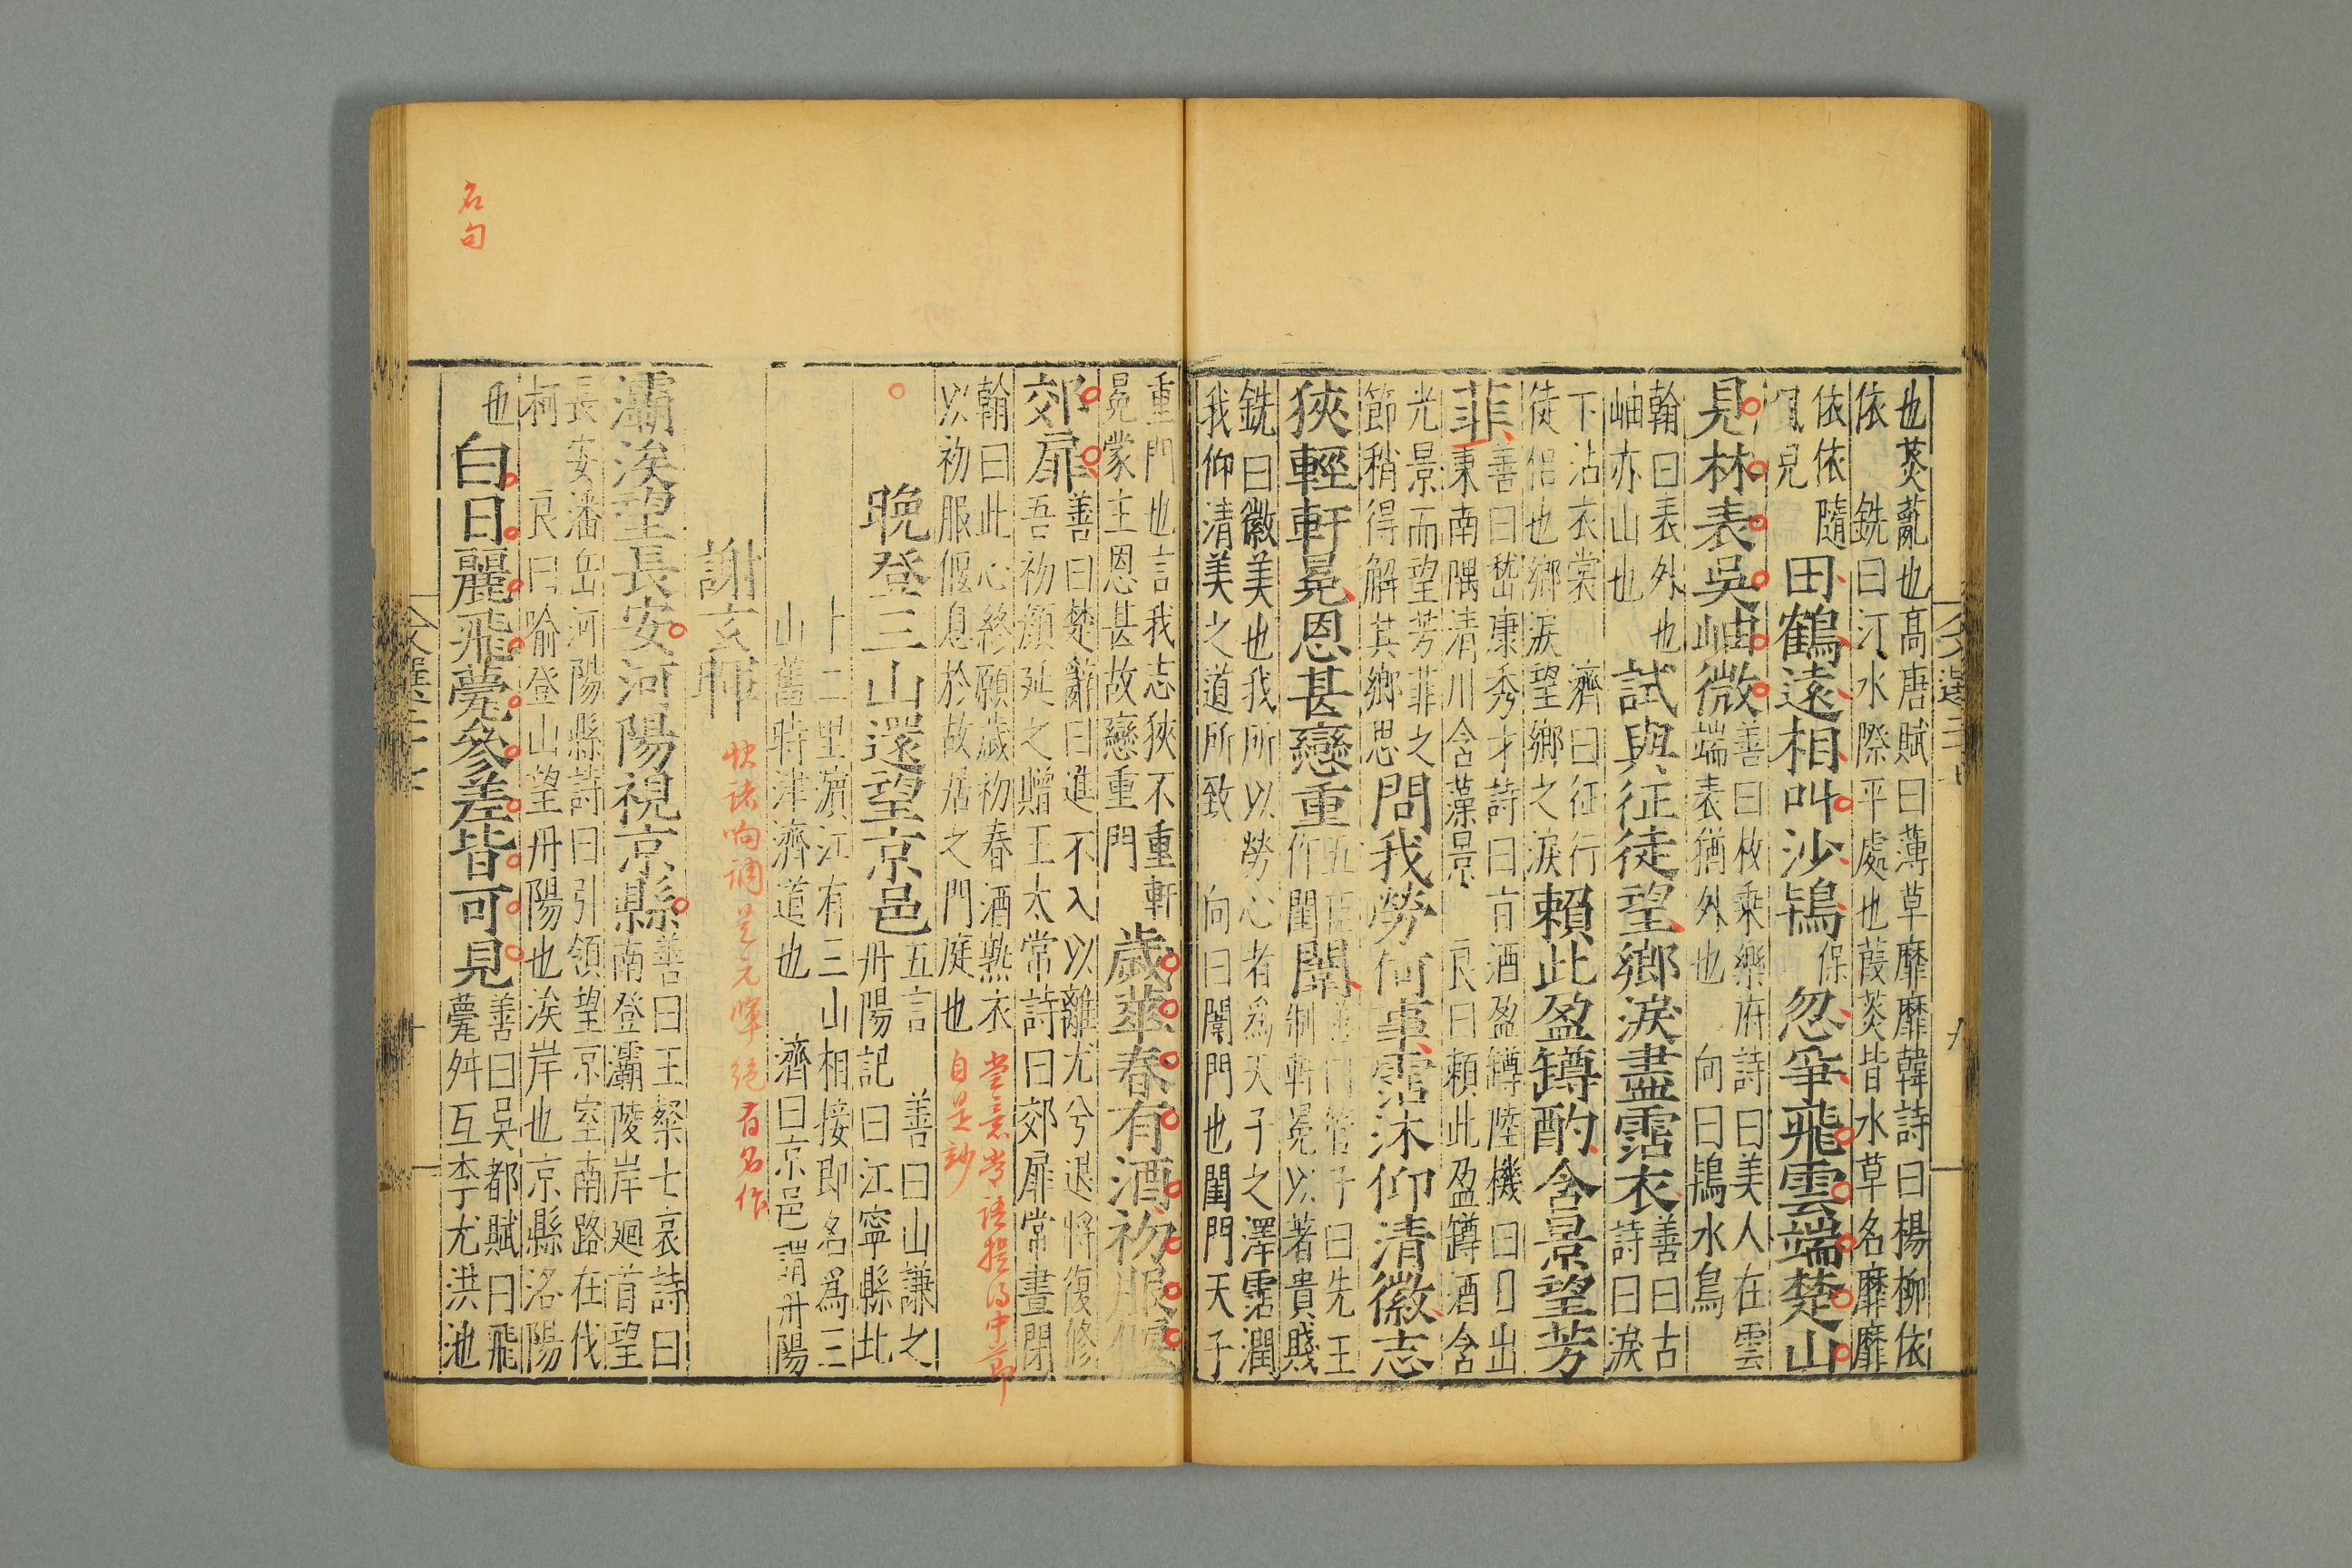 也菼薍也高唐賦曰薄草靡靡韓詩曰楊柳依
依依隨
依　銑曰汀水際平處也葭菼皆水草名靡靡
風皃
田鶴遠相叫沙鴇
保
忽爭飛雲端楚山
見林表吳岫微
善曰枚乘樂府詩曰美人在雲
端表猶外也　向曰鴇水鳥
翰曰表外也
岫亦山也
試與征徒望鄉淚盡霑衣
善曰古
詩曰淚
下沾衣裳　濟曰征行
徒侶也鄉淚望鄉之淚
賴此盈罇酌含景望芳
菲
善曰嵇康秀才詩曰旨酒盈罇陸機曰日出
東南隅清川含藻景　良曰賴此盈罇酒含
光景而望芳菲之
節稍得解其鄉思
問我勞何事霑沐仰清徽志
狹輕軒冕恩甚戀重
五臣
作闈
闈
善曰管子曰先王
制軒冕以著貴賤
銑曰徽美也我所以勞心者爲天子之澤霑潤
我仰清美之道所致　向曰闈門也闈門天子
重門也言我志狹不重軒
冕蒙主恩甚故戀重門
歲華春有酒初服偃
郊扉
善曰楚辭曰進不入以離尤兮退將復修
吾初顏延之贈王太常詩曰郊扉常晝閉
翰曰此心終願歲初春酒熟衣
以初服偃息於故居之門庭也
常意常語
自是妙
晚登三山還望京邑
五言　善曰山謙之
丹陽記曰江寧縣北
十二里濵江有三山相接即名爲三
山舊時津濟道也　濟曰京邑謂丹陽
謝玄暉
灞涘望長安河陽視京縣
善曰王粲七哀詩曰
南登灞陵岸廻首望
長安潘岳河陽縣詩曰引領望京室南路在伐
柯　良曰喻登山望丹陽也涘岸也京縣洛陽
也
白日麗飛甍參差皆可見
善曰吳都賦曰飛
甍舛互李尤洪池
名句